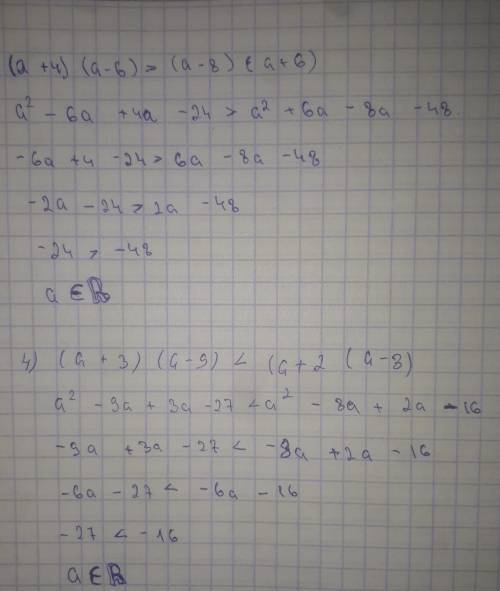 (a + 4) (a - 6) > (a - 8) (a + 6)
a² - 6a + 4a - 24 > a² + 6a - 8a - 48
-6a + 4 - 24 > 6a - 8a - 48
-2a - 24 > 2a - 48
-24 > -48
a ∈ R
4) (a + 3) (a - 9) < (a + 2 (a - 8)
a² - 9a + 3a - 27 < a² - 8a + 2a - 16
-9a + 3a - 27 < -8a + 2a - 16
-6a - 27 < -6a - 16
-27 < -16
a ∈ R